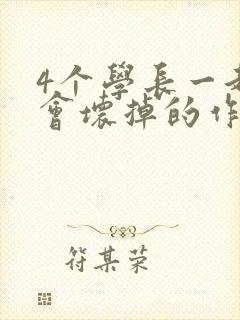 4个學長一
會壞掉的作
符某荣